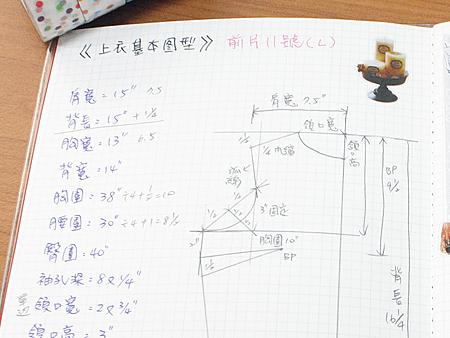 《上衣基本图型》 前片11號(L)
肩寬=15" 7.5
背長=15"+1½
胸寬=13" 6.5
背寬=14"
胸圍=38"÷4+½=10
腰圍=30"÷4+1=8½
臀圍=40"
袖孔深=8又¼"
領口寬=2又¾"
領口高=3"
肩寬 7.5"
領口寬
領口高
½
BP 9½
3"固定
½
½
胸圍10"
2"
BP
½
背長 16¼